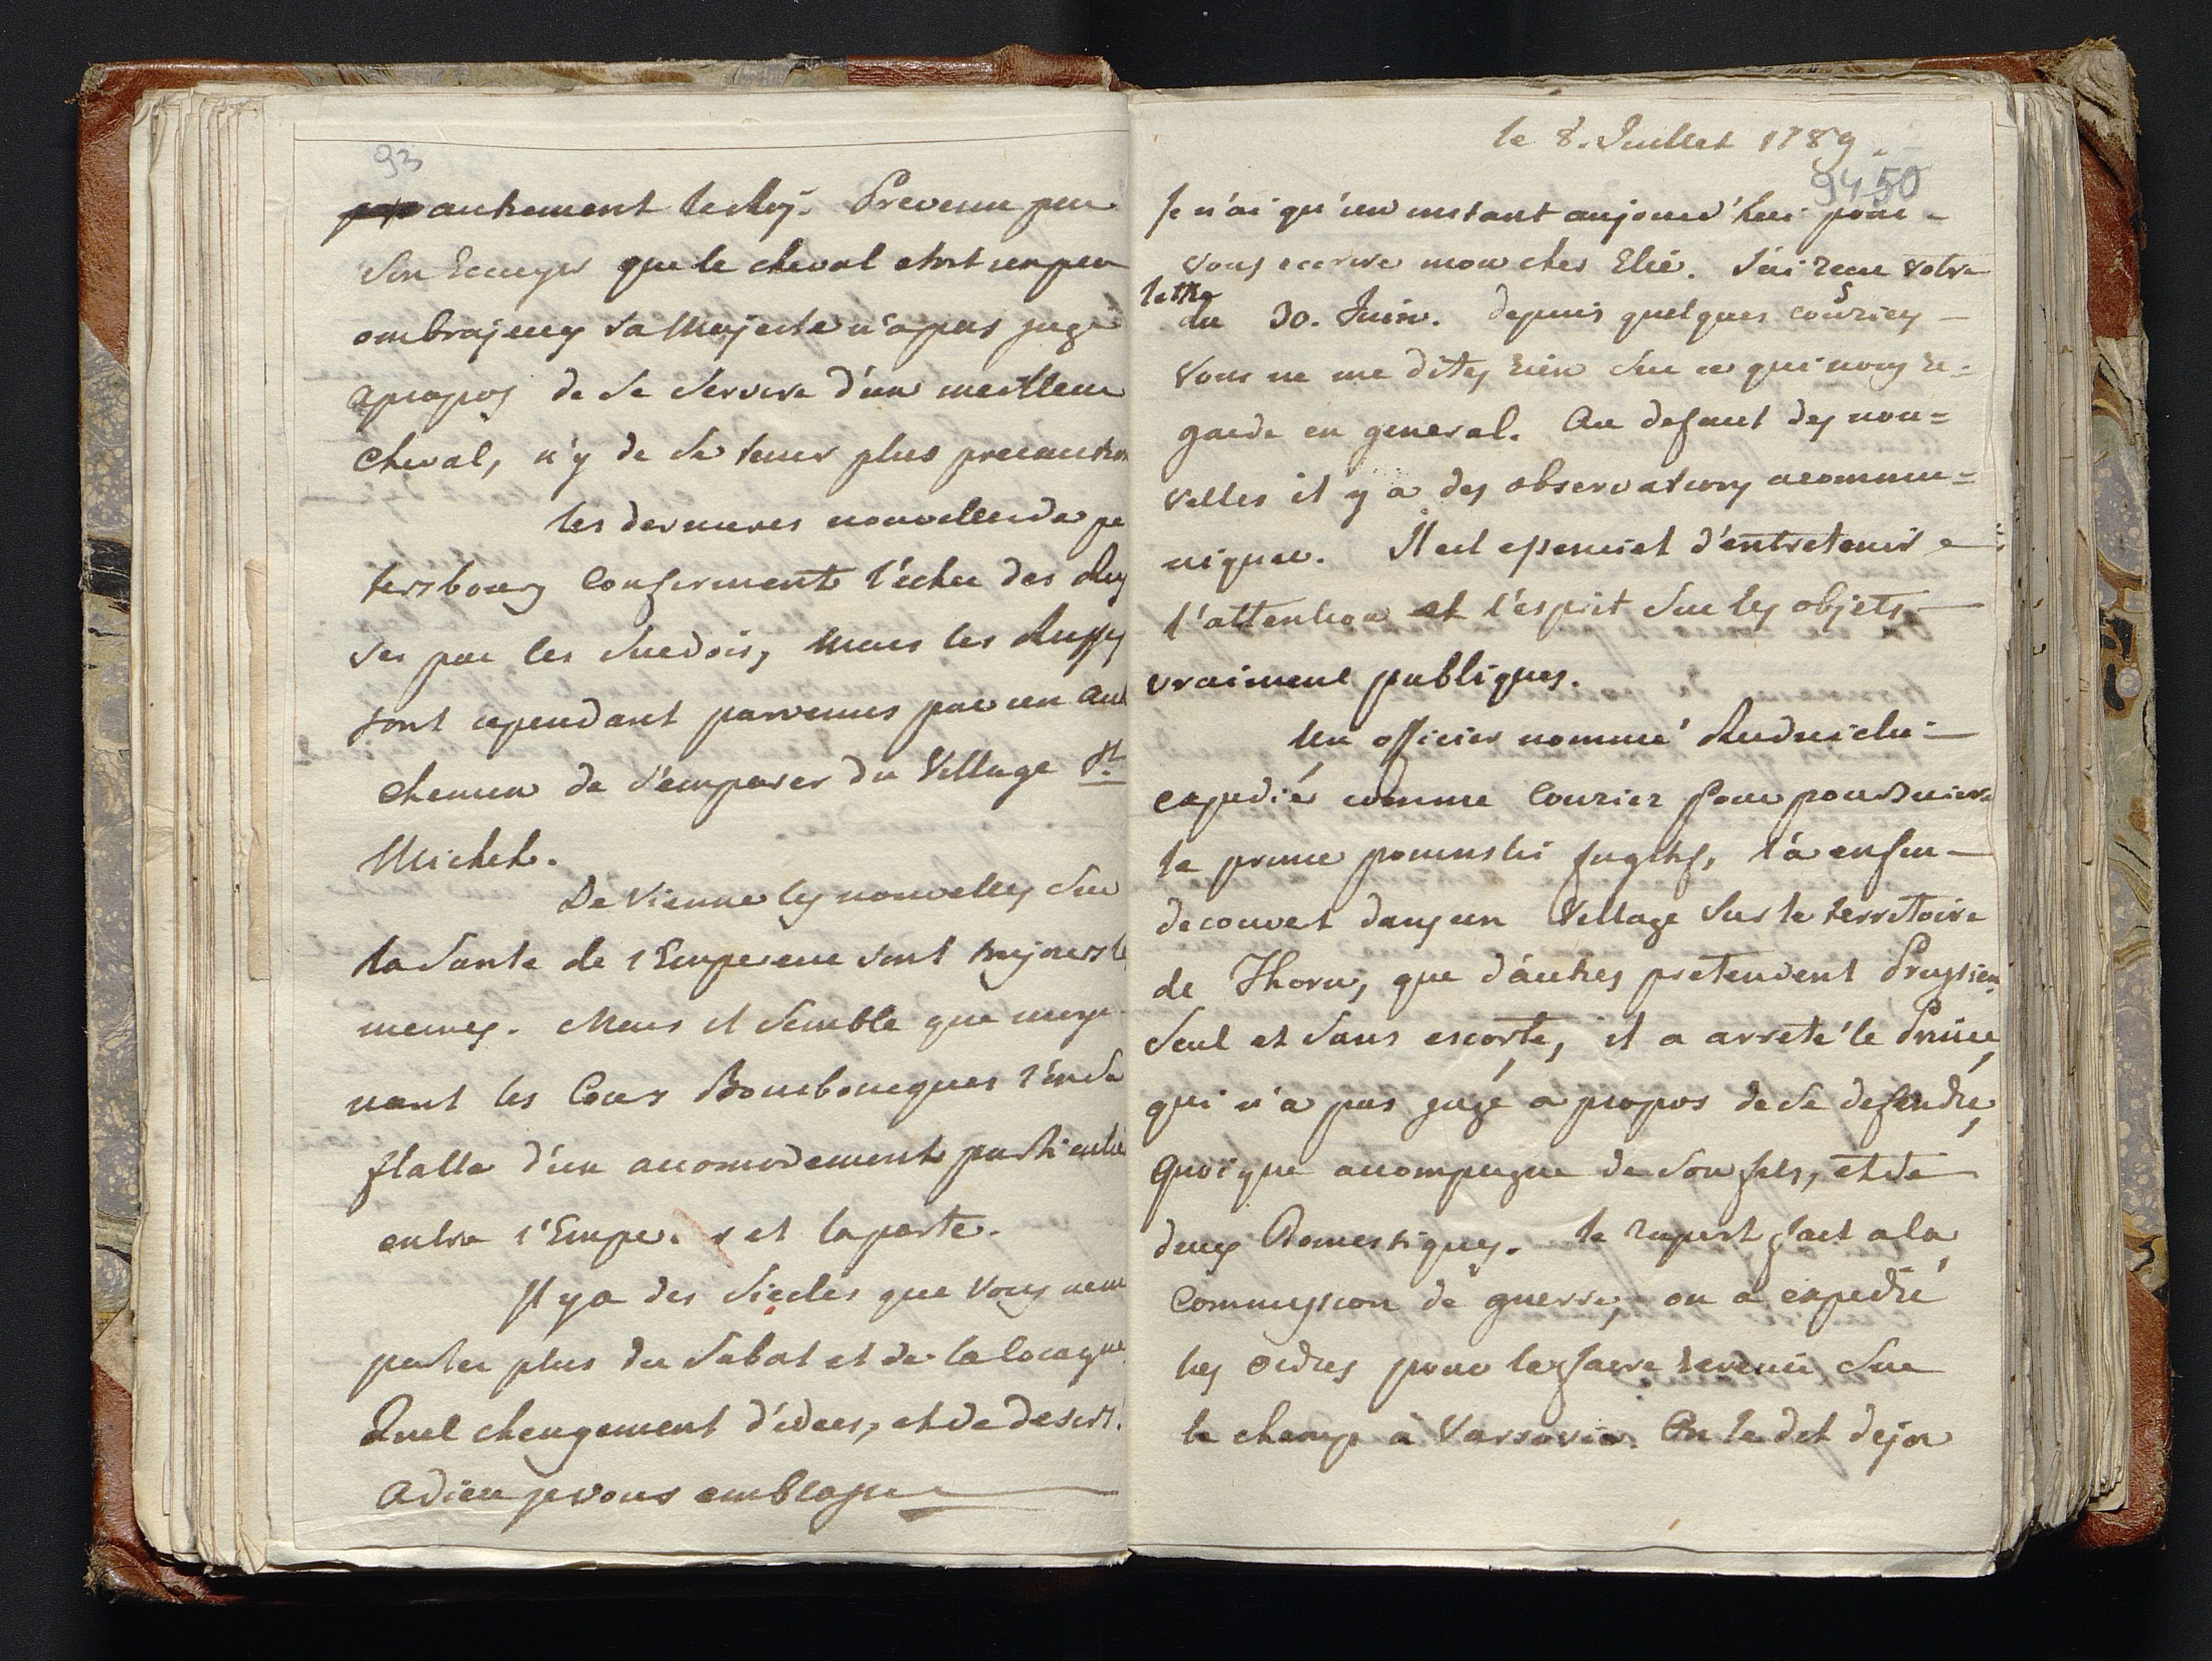 93
autrement le Roy. Prevenu par
Son Ecuyer que le cheval etoit un peu
ombrajeux sa Majesté n'a pas jugé
apropos de se servire d'un meilleur
cheval, n'y de se tenir plus precaution
les dernieres nouvelles de pe
tersbourg confirment l'echec des Rus
ses par les Suedois, Mais les Russes
sont cependant parvenus par un aut
chemin de s'emparer du Village St
Michel.
De Vienne les nouvelles sur
la Santé de l'Empereur sont toujours le
memes. Mais il semble que moye
nant les Cours Bourboniques l'on se
flatte d'un accomodement particulie
entre l'Empe. r et la porte.
Il y a des Siecles que Vous ne me
parlez plus du Sabat et de la Cocagne
Quel changement d'idees, et de desirs!
Adieu je vous embrasse
le 8. Juillet 1789.
94 50
Je n'ai qu'un instant aujourd'hui pour
vous ecrire mon cher Elie. J'ai recu votre
lettre
du 30. Juin. depuis quelques couriers
vous ne me dites rien sur ce qui nous re-
garde en general. Au defaut des nou=
velles il y a des observations a commu=
niquer. Il est essenciel d'entretenir
l'attention et l'esprit sur les objets
vraiment publiques.
Un officier nommé Rudnicki
expedié comme Courier pour poursuivre
le prince poninski fugitif, l'a enfin
decouvert dans un Village sur le territoire
de Thorn, que d'autres pretendent Prussien
Seul et sans escorte, il a arreté le Prince
qui n'a pas jugé a propos de se defendre,
quoique accompagne de son fils, et de
deux Domestiques. le raport fait a la
Commission de guerre, on a expedié
les ordres pour le faire revenir sur
le champ à Varsovie. On le dit deja